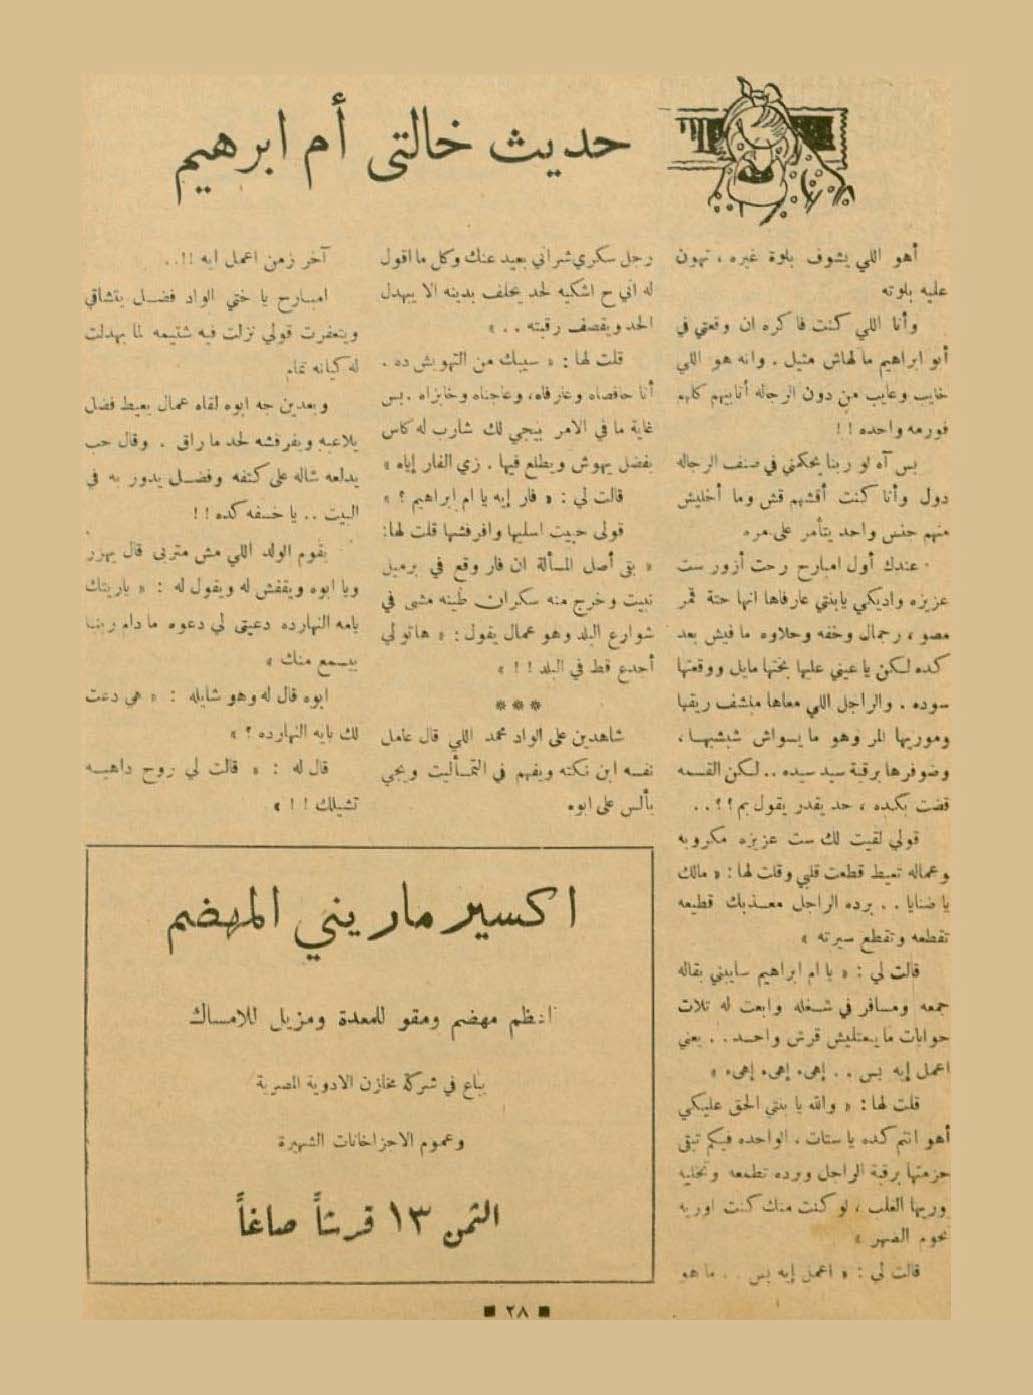 حديث خالتى أم ابرهيم
أهو اللي يشوف بلوة غيره ، تهون
عليه بلوته
وأنا اللي كنت فاكره ان وقعتي في
أبو ابراهيم مالهاش مثيل . وانه هو اللي
خايب وعايب من دون الرجاله أتابيهم كلهم
فورمه واحده ! !
بس آه لو ربنا يحكمني في صنف الرجاله
دول وأنا كنت أقشهم قش وما أخليش
منهم جنس واحد يتأمر على مره
عندك أول امبارح رحت أزور ست
عزيزه واديكي يابنتي عارفاها انها حتة قمر
مصور ، جمال وخفه وحلاوه مافيش بعد
كده لكن يا عيني عليها بختها مايل ووقعتها
سوده . والراجل اللي معاها منشف ريقها
وموريها المر وهو مايسواش شبشبها ،
وضوفرها برقبة سيد سيده .. لكن القسمه
قضت بكده ، حد يقدر يقول بم ؟ ؟ . .
قولي لقيت لك ست عزيزه مكروبه
وعماله تعيط قطعت قلبي وقلت لها : « مالك
يا ضنايا . . برده الراجل معذبك قطيعه
تقطعه وتقطع سيرته »
قالت لي : « يا ام ابراهيم سايبني بقاله
جمعه ومسافر في شغله وابعت له تلات
جوابات مايبعتليش قرش واحد . . يعني
اعمل إيه بس . . إهيء إهيء إهيء »
قلت لها : « والله يا بنتي الحق عليكي
أهو انتم كده ياستات ، الواحده فيكم تبقى
جزمتها برقبة الراجل وبرده تطمعه وتخليه
يوريها الغلب ، لو كنت منك كنت اوريه
نجوم الضهر »
قالت لي : « اعمل إيه بس . . ما هو
رجل سكري شراني بعيد عنك وكل ما اقول
له اني ح اشكيه لحد يحلف بدينه الا يبهدل
الحد ويقصف رقبته . . »
قلت لها : « سيبك من التهويش ده .
أنا حافضاه وعارفاه ، وعاجناه وخابزاه . بس
غاية ما في الامر ييجي لك شارب له كاس
يفضل يهوش ويطلع فيها . زي الفار إياه »
قالت لي : « فار إيه يا ام ابراهيم ؟ »
قولى حبيت اسليها وافرفشها قلت لها :
« بقى أصل المسألة ان فار وقع في برميل
نبيت وخرج منه سكران طينه مشى في
شوارع البلد وهو عمال يقول : « هاتولي
أجدع قط في البلد ! ! »
***
شاهدين على الواد محمد اللي قال عامل
نفسه ابن نكته ويفهم في التمأليت ويجي
يألس على ابوه
آخر زمن اعمل ايه !! . .
امبارح يا ختي الواد فضل يتشاقي
ويتعفرت قولي نزلت فيه شتيمه لما بهدلت
له كيانه تمام
وبعدين جه ابوه لقاه عمال يعيط فضل
يلاعبه ويفرفشه لحد ما راق . وقال حب
يدلعه شاله على كتفه وفضل يدور به في
البيت .. يا خفه كده ! !
يقوم الولد اللي مش متربى قال يهزر
ويا ابوه ويقفش له ويقول له : « ياريتك
يامه النهارده دعيتى لي دعوه مادام ربنا
بيسمع منك »
ابوه قال له وهو شايله : « هي دعت
لك بايه النهارده ؟ »
قال له : « قالت لي روح داهيه
تشيلك ! ! »
اكسير ماريني المهضم
انظم مهضم ومقو للمعدة ومزيل للامساك
يباع في شركة مخازن الادوية المصرية
وعموم الاجزاخانات الشهيرة
الثمن ١٣ قرشاً صاغاً
٢٨